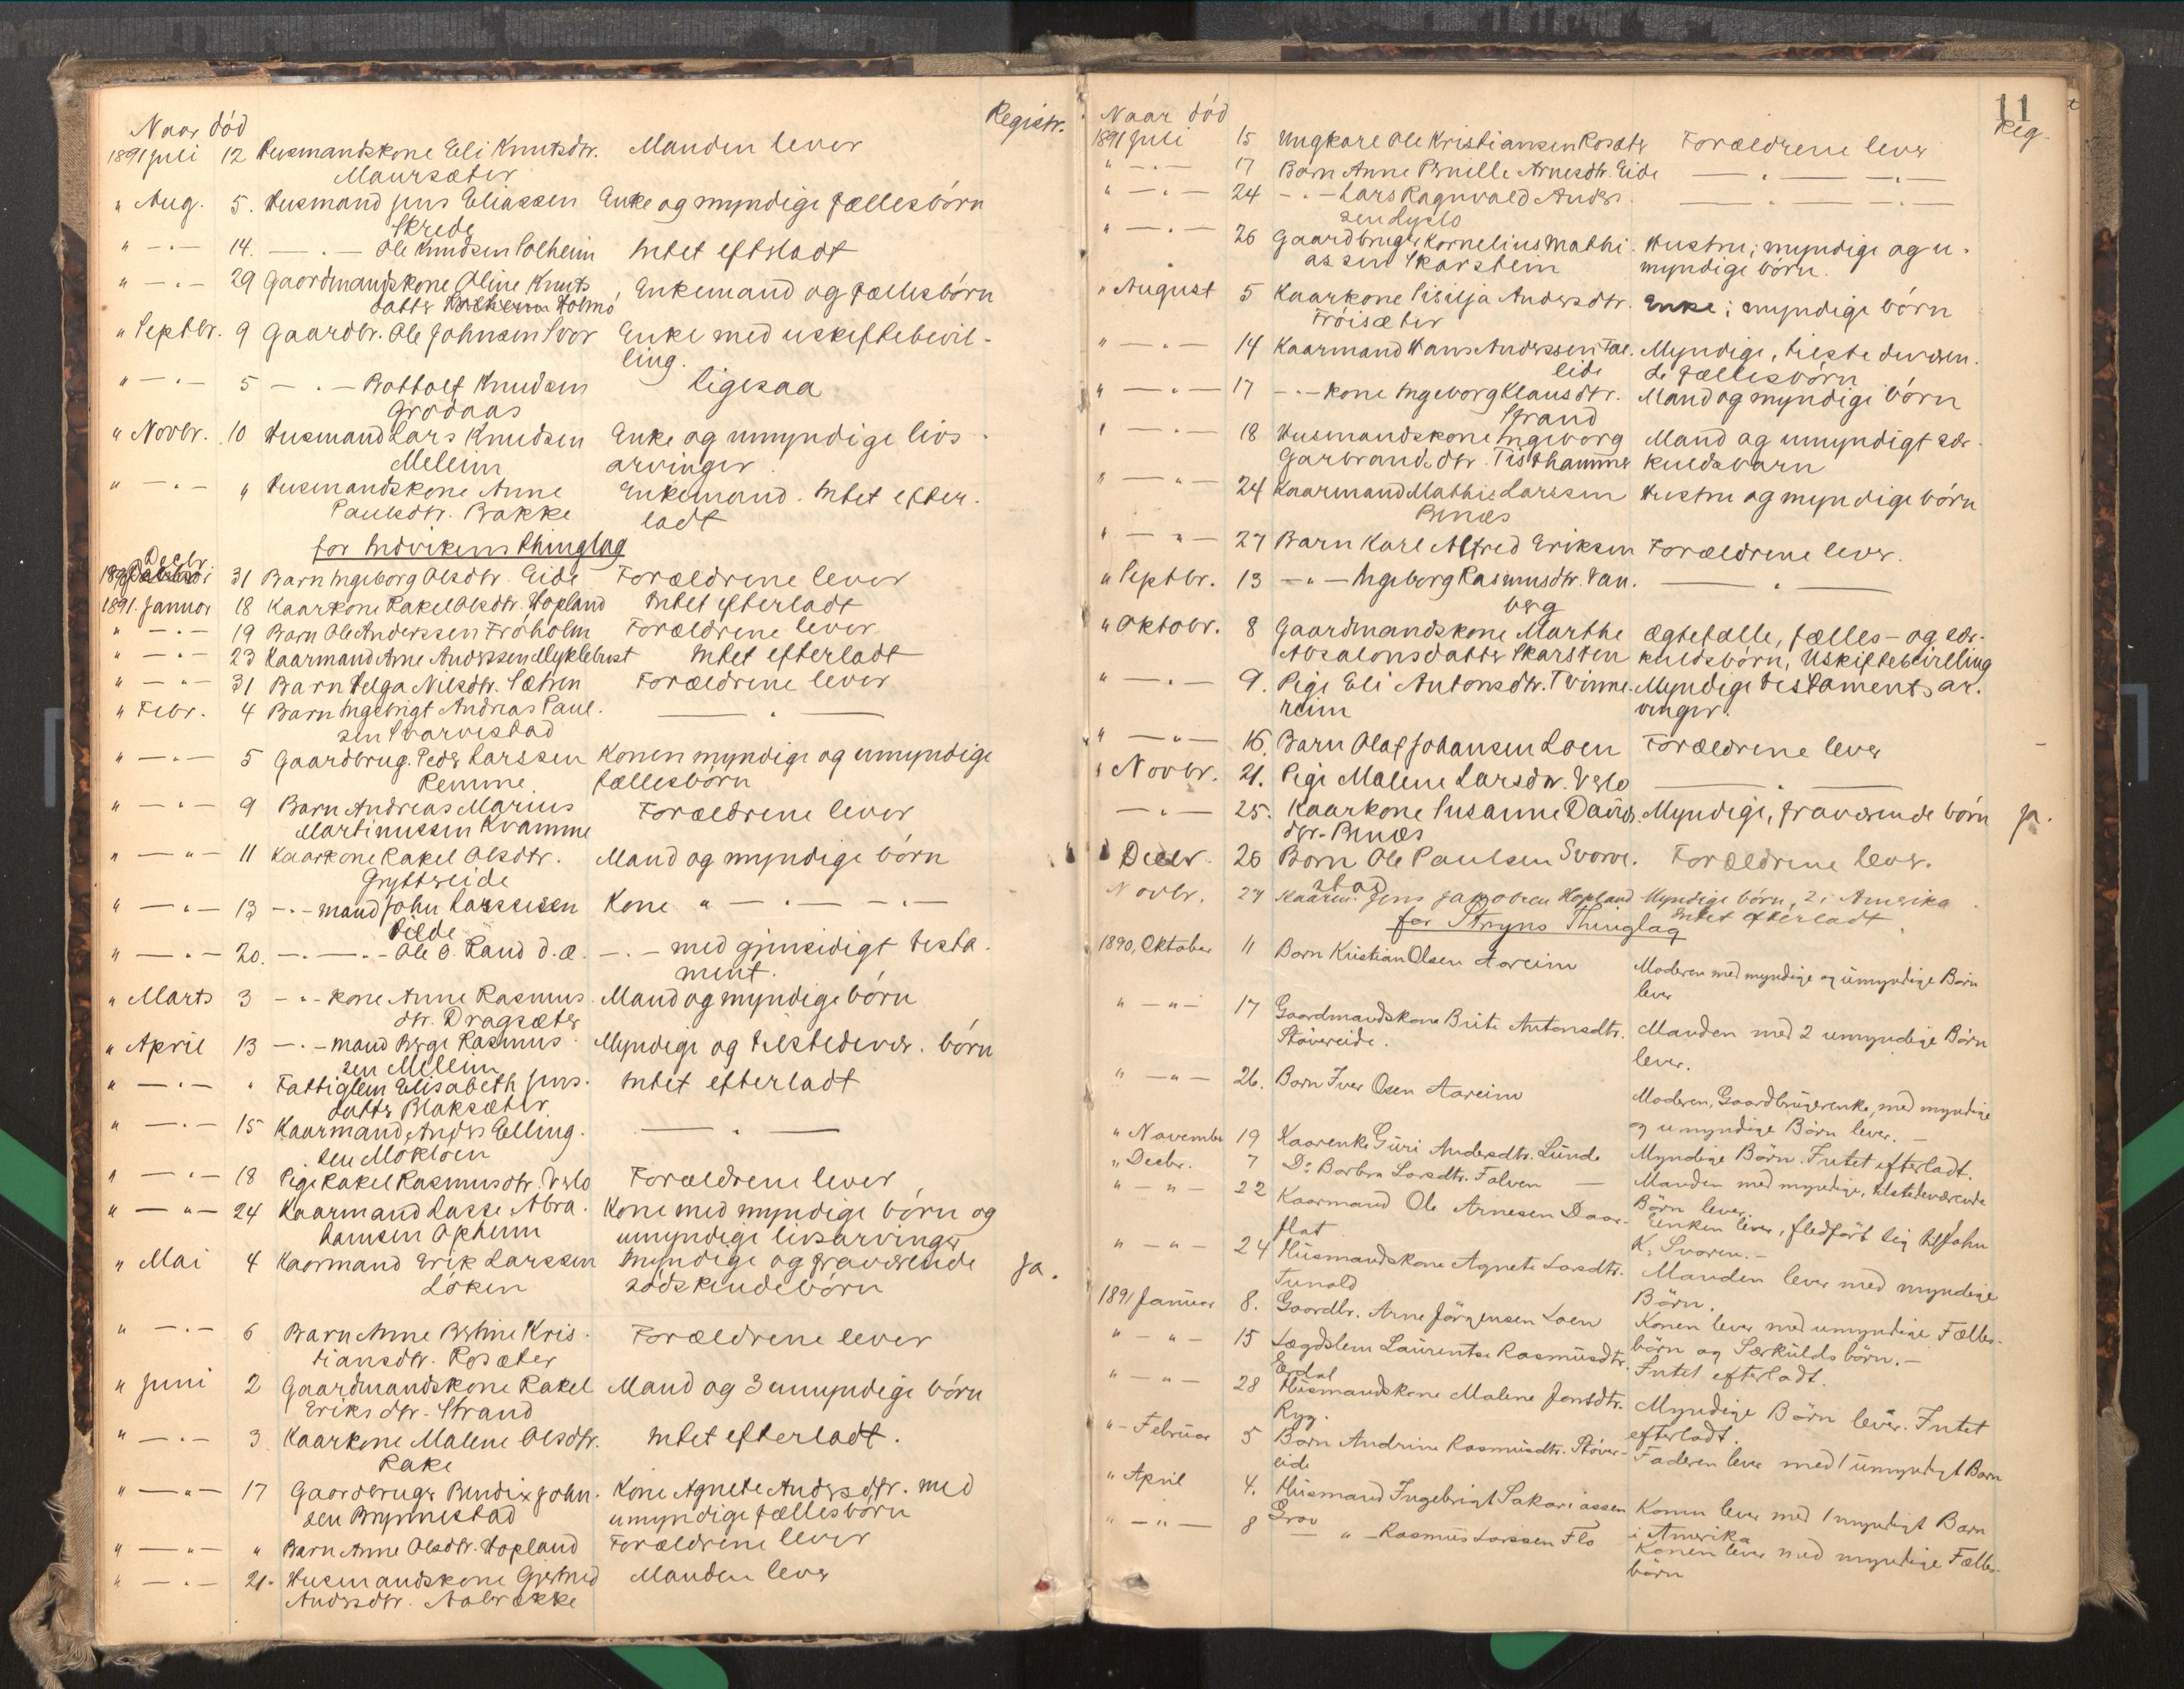 Naar død
Registr.
1891 Juli 12 Husmandskone Eli Knutsdtr. Manden lever
Maursæter
" Aug. 5. Husmand Jens Eliassen Enke og myndige fællesbörn
Skrede
" — " — 14. — " — Ole Knudsen Solheim Intet efterladt
" — " — 29 Gaardmandskone Oline Knuts Enkemand og fællesbörn
datter Holmö
" Septbr. 9 Gaardbr. Ole Johnsen Svor Enke med uskiftebevil-
ling.
" — " — 5 — " — Bottolf Knudsen ligesaa
Grodaas
" Novbr. 10 Husmand Lars Knudsen Enke og umyndige livs-
Meleim arvinger
" — " — " Husmandskone Anne Enkemand. Intet efter-
Paulsdtr. Bakke ladt
for Indvikens Thinglag
Decbr.
1890 31 Barn Ingeborg Olsdtr. Eide Forældrene lever
1891. Januar 18 Kaarkone Rakel Olsdtr. Hopland Intet efterladt
" — " — 19 Barn Ole Anderssen Fröholm Forældrene lever
" — " — 23 Kaarmand Arne Anderssen Myklebust Intet efterladt
" — " — 31 Barn Helga Nilsdtr. Sætren Forældrene lever
" Febr. 4 Barn Ingebrigt Andreas Paul- — " —
sen Svarvestad
" — " — 5 Gaardbrug. Peder Larssen Konen myndige og umyndige
Remme. fællesbörn
" — " — 9 Barn Andreas Marius Forældrene lever
Martinussen Kvamme
" — " — 11 Kaarkone Rakel Olsdtr. Mand og myndige börn
Gryttereide
" — " — 13 — " — mand John Larssen Kone " — " — — " —
Hilde
" — " — 20. — " — — " — Ole O. Rand d. æ. — " — med gjensidigt testa-
ment.
" Marts 3 — " — kone Anne Rasmus- Mand og myndige börn
dtr. Dragsæter
" April 13 — " — mand Berge Rasmus- Myndige og tilstedevær. börn
sen Meleim
" — " — " Fattiglem Elisabeth Jens- Intet efterladt
datter Blaksæter
" — " — 15 Kaarmand Anders Elling- — " —
sen Mökloen
" — " — 18 Pige Rakel Rasmusdtr. Verlo Forældrene lever
" — " — 24 Kaarmand Lasse Abra- Kone med myndige börn og
hamsen Opheim umyndige livsarvinger
" Mai 4 Kaarmand Erik Larssen Myndige og fraværende Ja.
Löken södskendebörn
" — " — 6 Barn Anne Bertine Kris- Forældrene lever
tiansdtr. Rosæter
" Juni 2 Gaardmandskone Rakel Mand og 3 umyndige börn
Eriksdtr. Strand
" — " — 3. Kaarkone Malene Olsdtr. Intet efterladt.
Rake
" — " — 17 Gaardbruger Bendix John- Kone Agnete Andersdtr. med
sen Brynnestad umyndige fællesbörn
" — " — " Barn Anne Olsdtr. Hopland Forældrene lever
" — " — 21. Husmandskone Gjertrud Manden lever
Andersdtr. Aabrække
11
Naar död
Reg.
1891 Juli 15 Ungkare Ole Kristiansen Rosæter Forældrene lever
" — " — 17 Barn Anne Pernille Arnesdtr. Eide — " — — " —
" — " — 24 — " — Lars Ragnvald Anders- — " — — " —
sen Lyslo
" — " — 26 Gaardbruger Kornelius Mathi- Hustru; myndige og u-
assen Skarstein myndige börn.
" August 5 Kaarkone Sisilja Andersdtr. Enke; myndige börn
Fröisæter
" — " — 14 Kaarmand Hans Anderssen Fal- Myndige, tilstedeværen-
eide de fællesbörn
" — " — 17 — " — kone Ingeborg Klausdtr. Mand og myndige börn
Strand
" — " — 18 Husmandskone Ingeborg Mand og umyndigt sær-
Garbrandsdtr. Tisthammer kuldsbarn
" — " — 24 Kaarmand Mathis Larssen Hustru og myndige börn
Brnæs
" — " — 27 Barn Karl Alfred Eriksen Forældrene lever.
" Septbr. 13 — " — Ingeborg Rasmusdtr. Van- — " —
berg
" Oktobr. 8 Gaardmandskone Marthe Ægtefælle, fælles- og sær-
Absalonsdatter Skarsten kuldsbörn, Uskiftebevilling
" — " — 9. Pige Eli Antonsdtr. Tvinne- Myndige testaments ar-
reim vinger.
" — " — 16. Barn Olaf Johansen Loen Forældrene lever
" Novbr. 21. Pige Malene Larsdtr. Verlo — " —
— " — 25. Kaarkone Susanne Davids- Myndige, fraværende börn Ja.
dtr. Brnæs
" Decbr. 26 Barn Ole Paulsen Svarve- Forældrene lever.
stad
Novbr. 27 Kaarm. Jens Jakobsen Hopland Myndige börn, 2 i Amerika
Intet efterladt
for Stryns Thinglag
1890, Oktober 11 Barn Kristian Olsen Aareim Moderen med myndige og umyndige Börn
lever
" — " — 17 Gaardmandskone Brite Antonsdtr. Manden med 2 umyndige Börn
Stövereide. lever.
" — " — 26. Barn Iver Olsen Aareim Moderen, Gaardbrugerenke, med myndige
og umyndige Börn lever. —
" November 19 Kaarenke Guri Andersdtr. Lunde Myndige Börn. Intet efterladt.
" Decbr. 7 Do Barbra Larsdtr. Folven — Manden med myndige, tilstedeværende
Börn lever.
" — " — 22 Kaarmand Ole Arnesen Daar- Enken lever, fledfört sig til John
flat K. Svoren. —
" — " — 24 Husmandskone Agnete Larsdtr. Manden lever med myndige
Tunold Börn.
1891 Januar 8. Gaardbr. Arne Jörgensen Loen Konen lever med umyndige Fælles-
börn og Særkuldsbörn. —
" — " — 15 Lægdslem Laurentse Rasmusdtr. Intet efterladt.
Erdal
" — " — 28 Husmandskone Malene Jonsdtr. Myndige Börn lever. Intet
Ryg. efterladt.
" — Februar 5 Barn Andrine Rasmusdtr. Stöver- Faderen lever med 1 umyndigt Barn
eide
" April 4. Husmand Ingebrigt Sakariassen Konen lever med 1 myndigt Barn
Grov i Amerika
" — " — 8 — " — Rasmus Larssen Flo Konen lever med myndige Fælles-
börn